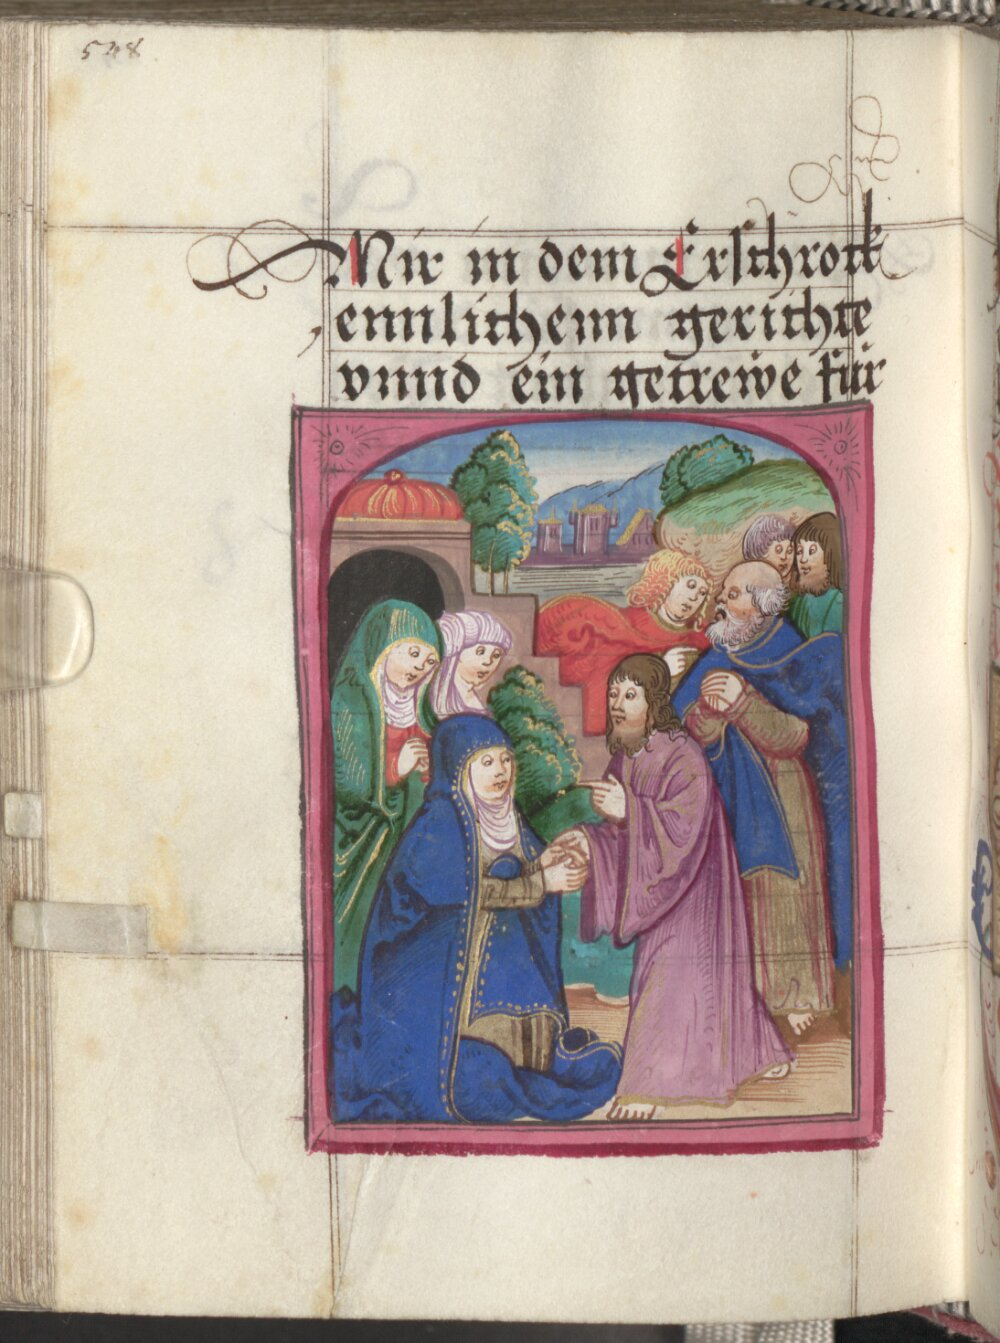 548
Mir in dem Erschrock
ennlichenn gerichte
vnnd ein getrewe für